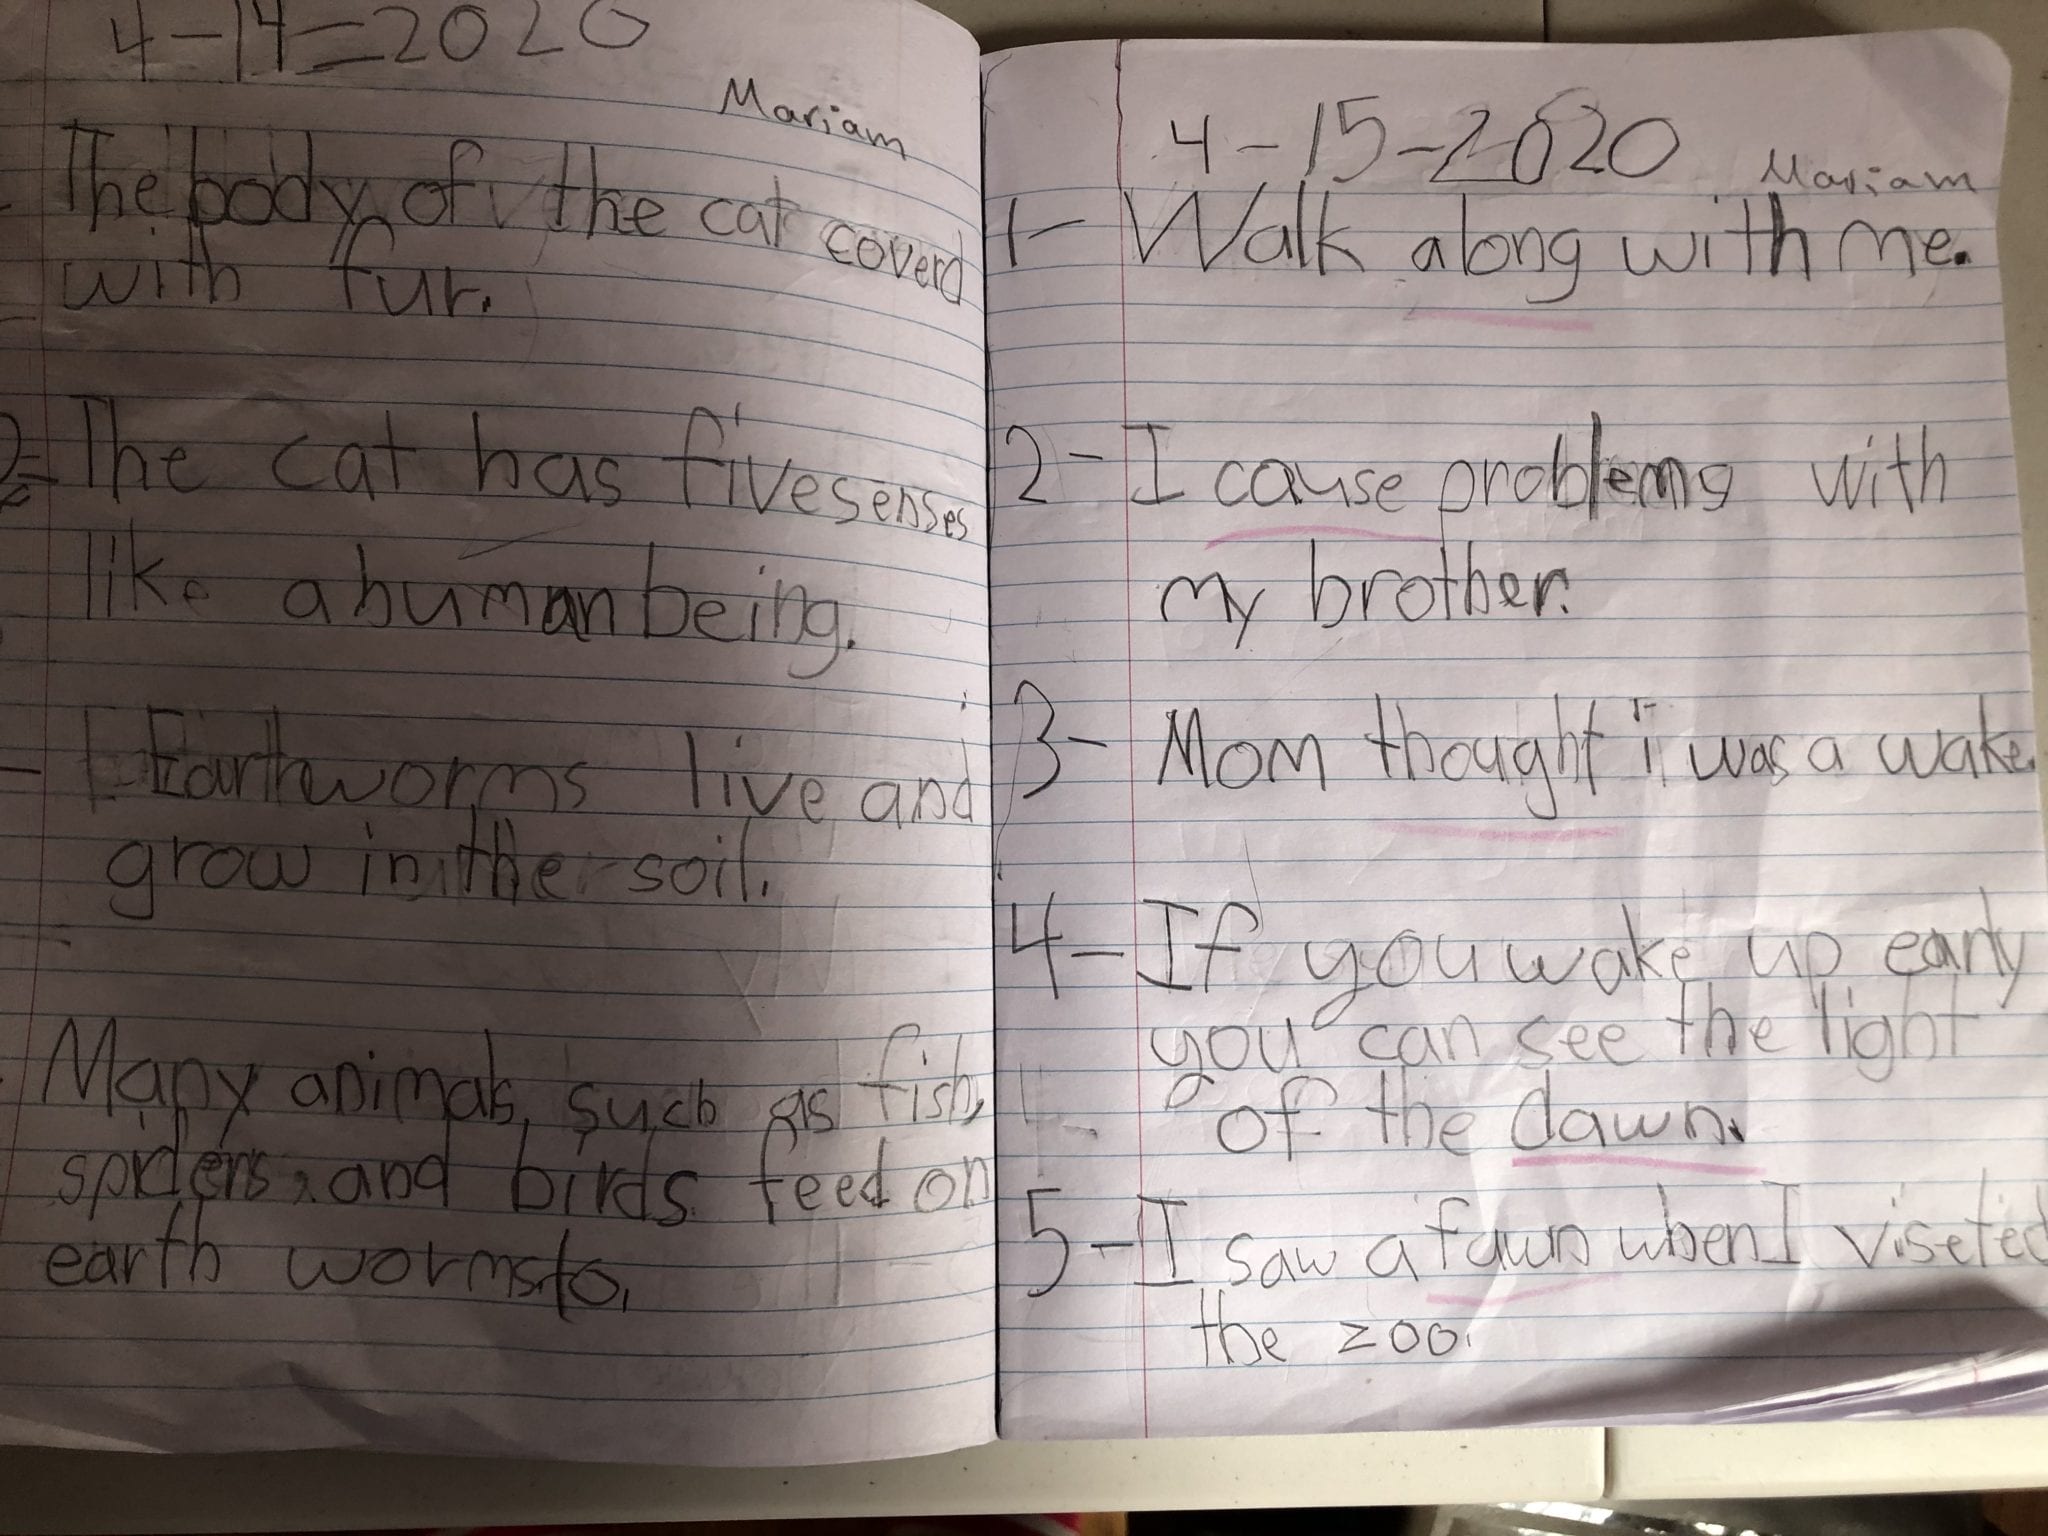 4-14=2020
Mariam
The body of the cat coverd
with fur.
2= The cat has five senses
like a human being.
- Earthworms live and
grow in the soil.
Many animals, such as fish,
spiders, and birds feed on
earth worms to.
4-15-2020
Mariam
1- Walk along with me.
2- I cause problems with
my brother.
3- Mom thought i was a wake.
4- If you wake up early
you can see the light
of the dawn.
5- I saw a fawn when I viseted
the zoo.